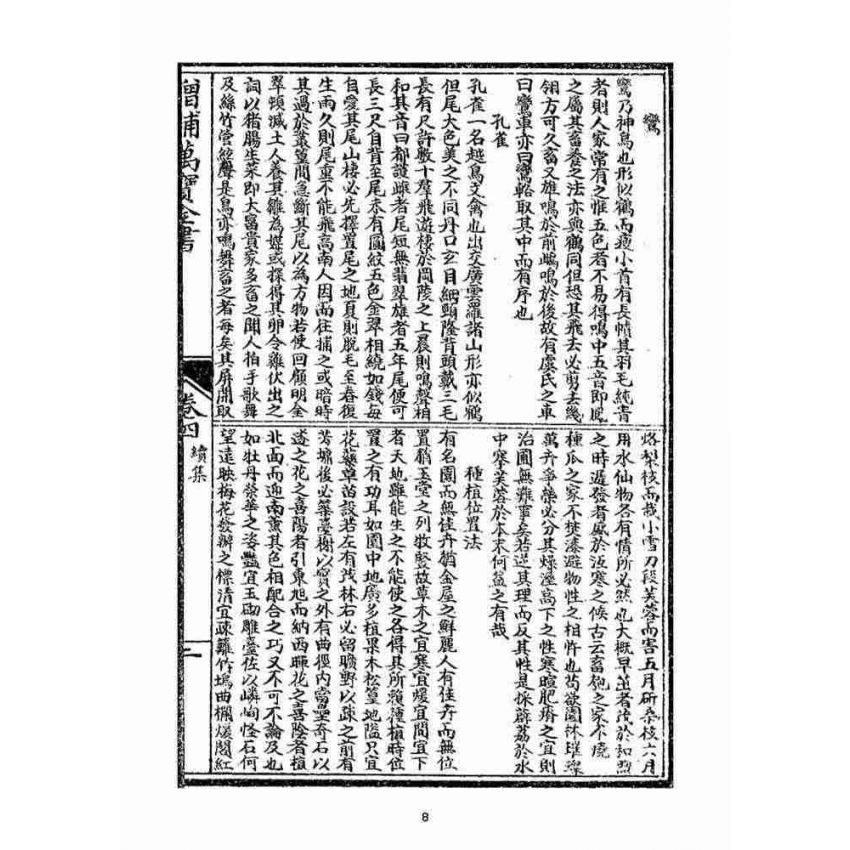 鸞
鸞乃神鳥也形似鶴而瘦小首有長幘其羽毛純青
者則人家常有之惟五色者不易得鳴中五音即鳳
之屬其畜養之法亦與鶴同但恐其飛去必剪去幾
翎方可久畜又雄鳴於前雌鳴於後故有虞氏之車
曰鸞車亦曰鸞輅取其中而有序也
孔雀
孔雀一名越鳥文禽也出交廣雲羅諸山形亦似鶴
但尾大色美之不同丹口玄目細頸隆背頭戴三毛
長有尺許數十羣飛遊棲於岡陵之上晨則鳴聲相
和其音曰都護雌者尾短無翡翠雄者五年尾便可
長三尺自背至尾末有圓紋五色金翠相繞如錢每
自愛其尾山棲必先擇置尾之地夏則脫毛至春復
生雨久則尾重不能飛高南人因而往捕之或暗時
其過於叢篁間急斷其尾以為方物若使回顧明金
翠頓減土人養其雛為媒或探得其卵令雞伏出之
詞以猪腸生菜即大富貴家多畜之聞人拍手歌舞
及絲竹管絃聲是鳥亦鳴舞畜之者每矣其屏開取
烙梨枝而栽小雪刀段芙蓉而害五月斫桑枝六月
用水仙物各有情所必然也大概早茁者茂於和煦
之時遲發者盛於沍寒之候古云畜匏之家不燒
種瓜之家不焚漆避物性之相忤也苟欲園林璀璨
萬卉爭榮必分其燥溼高下之性寒暄肥瘠之宜則
治圃無難事矣若逆其理而反其性是採薜荔於水
中搴芙蓉於木末何益之有哉
種植位置法
有名園而無佳卉猶金屋之鮮麗人有佳卉而無位
置猶玉堂之列牧豎故草木之宜寒宜煖宜間宜下
者天地雖能生之不能使之各得其所賴種植時位
置之有功耳如園中地廣多植果木松篁地隘只宜
花藥草苗設若左有茂林右必留曠野以疎之前有
芳塘後必築臺榭以實之外有曲徑內當壘奇石以
邃之花之喜陽者引東旭而納西暉花之喜陰者植
北面而迎南熏其色相配合之巧又不可不論及也
如牡丹榮華之姿豔宜玉砌雕臺佐以嶙峋怪石何
望遠映梅花發瓣之標清宜疎籬竹塢曲欄煖閣紅
增補萬寶全書
卷四
續集
二
8